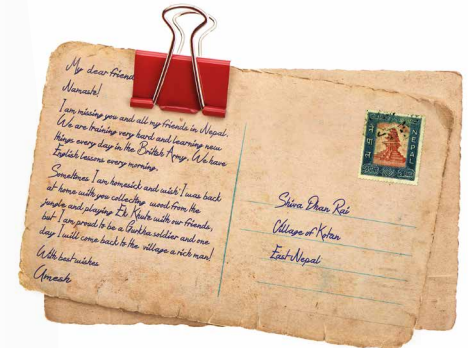 My dear friend
Namaste!
I am missing you and all my friends in Nepal.
We are training very hard and learning new
things every day in the British Army. We have
English lessons every morning.
Sometimes I am homesick and wish I was back
at home with you collecting wood from the
jungle and playing Ek Khute with our friends,
but I am proud to be a Gurkha soldier and one
day I will come back to the village a rich man!
With best wishes
Umesh
NEPAL
Shiva Dhan Rai
Village of Kotan
East Nepal